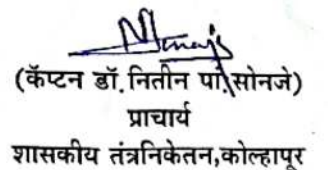 (कॅप्टन डॉ. नितीन पां. सोनजे)
प्राचार्य
शासकीय तंत्रनिकेतन,कोल्हापूर